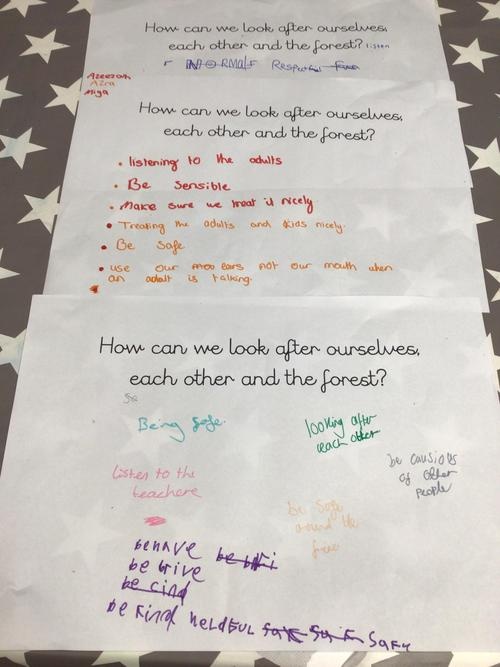 How can we look after ourselves,
each other and the forest? listen
Respectful
Azeezah
Azra
Miya
How can we look after ourselves,
each other and the forest?
• listening to the adults
• Be Sensible
• Make sure we treat it nicely
• Treating the adults and kids nicely.
• Be Safe
• use our ears not our mouth when
an adult is talking.
How can we look after ourselves,
each other and the forest?
Being safe.
looking after
each other
be causious
of other
people
Listen to the
teachere
be safe
around the
fire
behave
be brive
be cind
be kind heldful safy